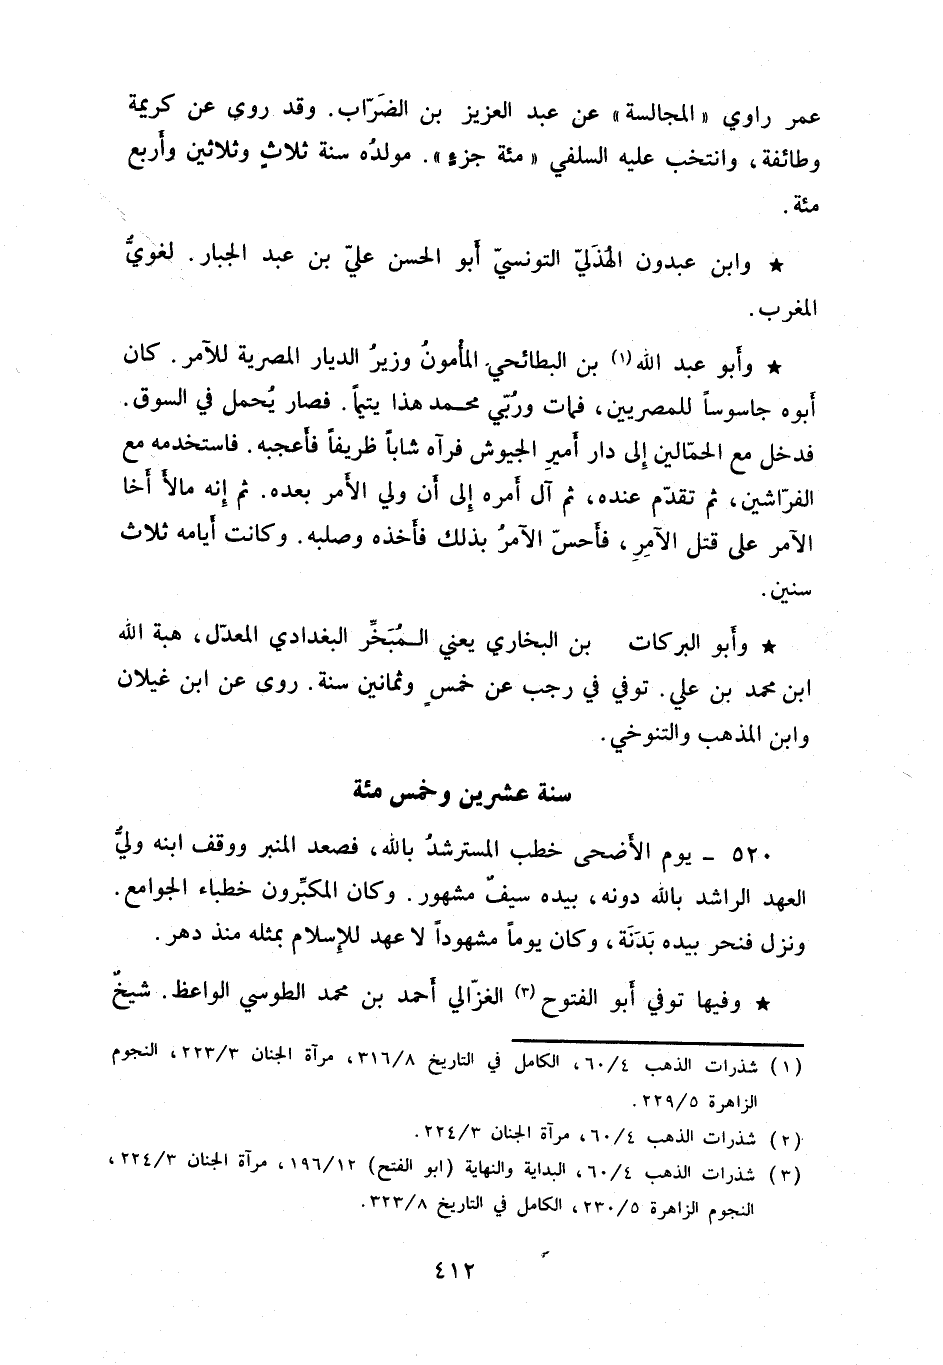 عمر راوي «المجالسة» عن عبد العزيز بن الضَرّاب. وقد روى عن كريمة
وطائفة، وانتخب عليه السلفي «مئة جزء». مولدُه سنة ثلاثٍ وثلاثين وأربع
مئة.
★ وابن عبدون الهُذَليّ التونسيّ أبو الحسن عليّ بن عبد الجبار. لغويُّ
المغرب.
★ وأبو عبد الله(١) بن البطائحي المأمونُ وزيرُ الديار المصرية للآمر. كان
أبوه جاسوساً للمصريين، فمات ورُبّي محمد هذا يتيماً. فصار يُحمل في السوق.
فدخل مع الحمّالين إلى دار أميرِ الجيوش فرآه شاباً ظريفاً فأعجبه. فاستخدمه مع
الفرّاشين، ثم تقدّم عنده، ثم آل أمره إلى أن ولي الأمر بعده. ثم إنه مالأ أخا
الآمر على قتل الآمِرِ، فأحسّ الآمرُ بذلك فأخذه وصلبه. وكانت أيامه ثلاث
سنين.
★ وأبو البركات بن البخاري يعني المُبَخِّر البغدادي المعدّل، هبة الله
ابن محمد بن علي. توفي في رجب عن خمسٍ وثمانين سنة. روى عن ابن غيلان
وابن المذهب والتنوخي.
سنة عشرين وخمس مئة
٥٢٠ - يوم الأضحى خطب المسترشدُ بالله، فصعد المنبر ووقف ابنه وليُّ
العهد الراشد بالله دونه، بيده سيفٌ مشهور. وكان المكبِّرون خطباء الجوامع.
ونزل فنحر بيده بَدَنَة، وكان يوماً مشهوداً لا عهد للإسلام بمثله منذ دهر.
★ وفيها توفي أبو الفتوح(٣) الغزّالي أحمد بن محمد الطوسي الواعظ. شيخٌ
(١) شذرات الذهب ٦٠/٤، الكامل في التاريخ ٣١٦/٨، مرآة الجنان ٢٢٣/٣، النجوم
الزاهرة ٢٢٩/٥.
(٢) شذرات الذهب ٦٠/٤، مرآة الجنان ٢٢٤/٣.
(٣) شذرات الذهب ٦٠/٤، البداية والنهاية (ابو الفتح) ١٩٦/١٢، مرآة الجنان ٢٢٤/٣،
النجوم الزاهرة ٢٣٠/٥، الكامل في التاريخ ٣٢٣/٨.
٤١٢